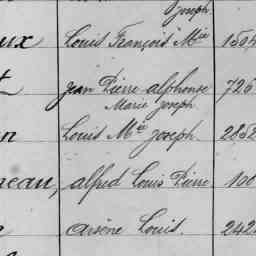 Joseph
ux Louis François Mie 1504
t Jean Pierre alphonse 726
Marie Joseph
n Louis Mie Joseph 2852
neau, alfred Louis Pierre 100
e Arsène Louis. 242